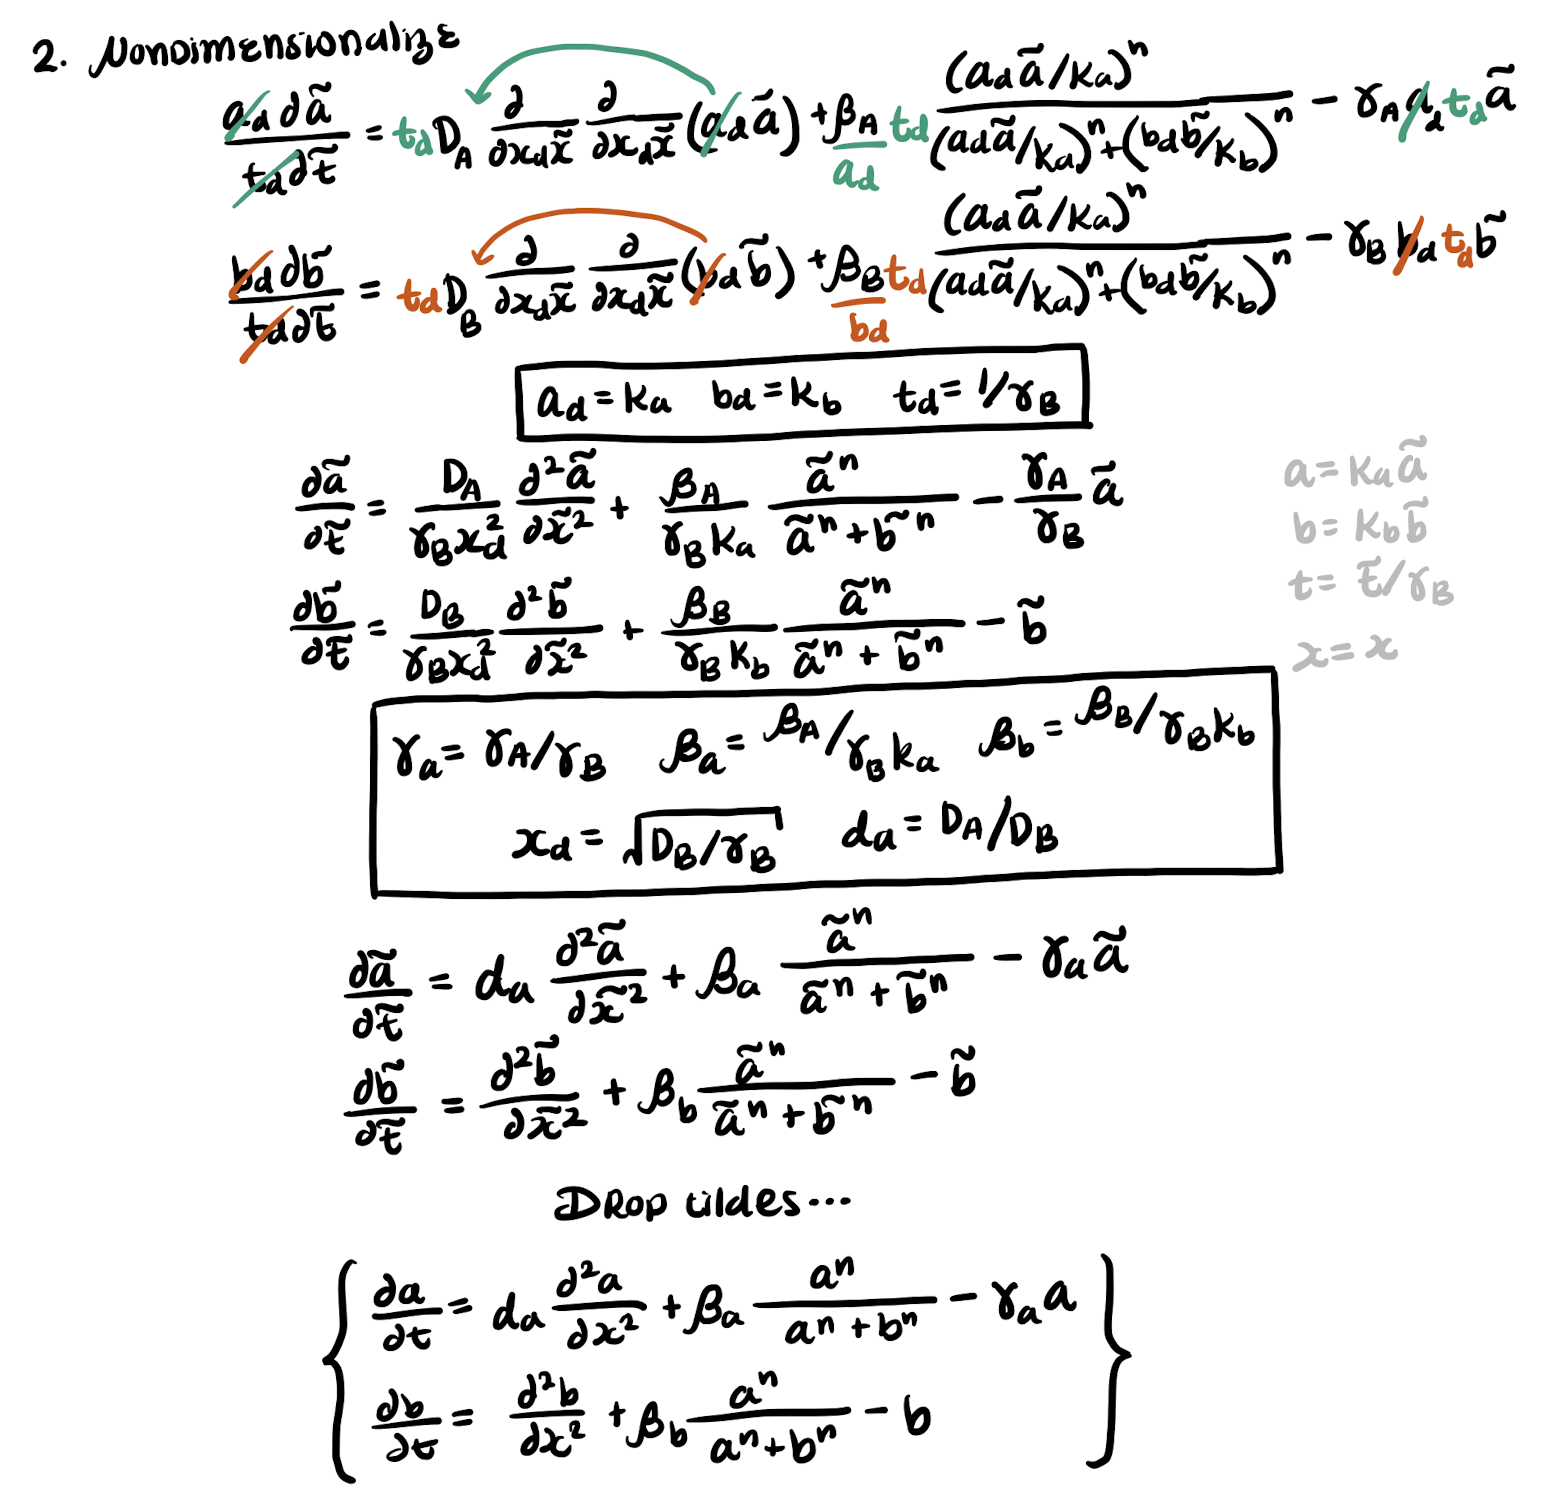 2. Nondimensionalize
a_d ∂ã / t_d ∂t̃ = t_d D_A ∂/∂x_d x̃ ∂/∂x_d x̃ (a_d ã) + β_A/a_d t_d (a_d ã/k_a)^n / ((a_d ã/k_a)^n + (b_d b̃/k_b)^n) − γ_A a_d t_d ã
b_d ∂b̃ / t_d ∂t̃ = t_d D_B ∂/∂x_d x̃ ∂/∂x_d x̃ (b_d b̃) + β_B/b_d t_d (a_d ã/k_a)^n / ((a_d ã/k_a)^n + (b_d b̃/k_b)^n) − γ_B b_d t_d b̃
a_d = k_a b_d = k_b t_d = 1/γ_B
∂ã/∂t̃ = D_A/(γ_B x_d^2) ∂^2ã/∂x̃^2 + β_A/(γ_B k_a) ã^n/(ã^n + b̃^n) − γ_A/γ_B ã
∂b̃/∂t̃ = D_B/(γ_B x_d^2) ∂^2b̃/∂x̃^2 + β_B/(γ_B k_b) ã^n/(ã^n + b̃^n) − b̃
a = k_a ã
b = k_b b̃
t = t̃/γ_B
x = x
γ_a = γ_A/γ_B β_a = β_A/γ_B k_a β_b = β_B/γ_B k_b
x_d = √(D_B/γ_B) d_a = D_A/D_B
∂ã/∂t̃ = d_a ∂^2ã/∂x̃^2 + β_a ã^n/(ã^n + b̃^n) − γ_a ã
∂b̃/∂t̃ = ∂^2b̃/∂x̃^2 + β_b ã^n/(ã^n + b̃^n) − b̃
Drop tildes...
∂a/∂t = d_a ∂^2a/∂x^2 + β_a a^n/(a^n + b^n) − γ_a a
∂b/∂t = ∂^2b/∂x^2 + β_b a^n/(a^n + b^n) − b